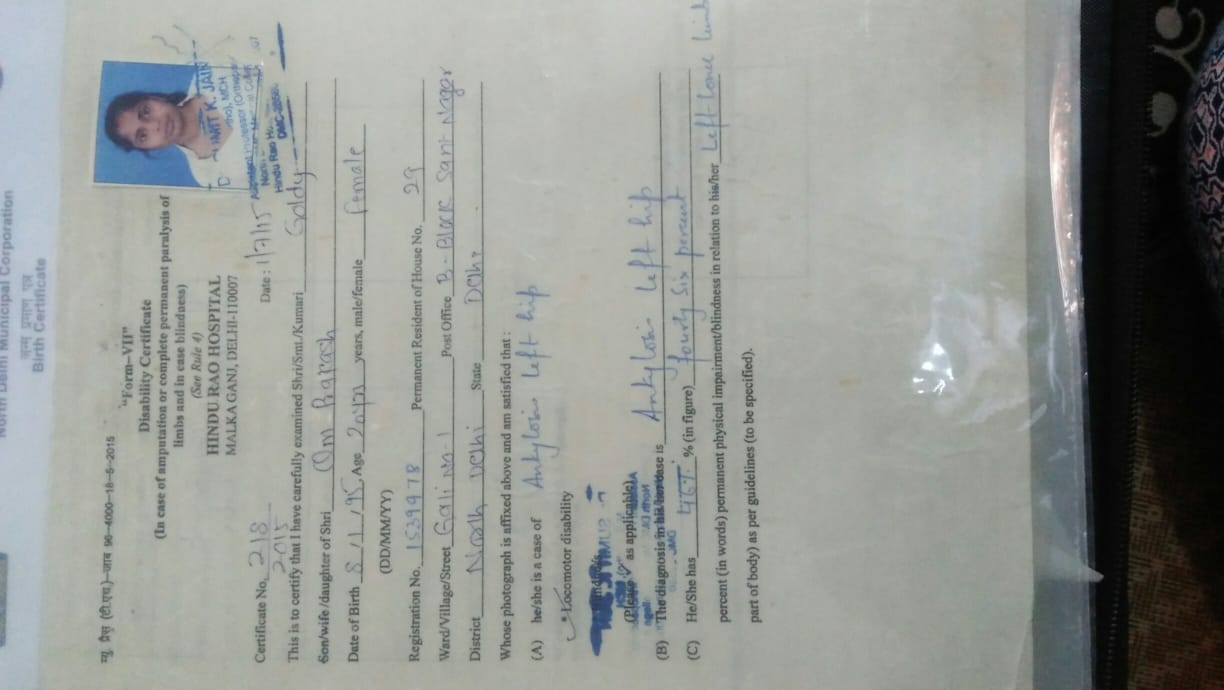 North Delhi Municipal Corporation
जन्म प्रमाण पत्र
Birth Certificate
"Form-VII"
Disability Certificate
(In case of amputation or complete permanent paralysis of
limbs and in case blindness)
(See Rule 4)
HINDU RAO HOSPITAL
MALKA GANJ, DELHI-110007
Certificate No. 218
2015
Date: 1/7/15
This is to certify that I have carefully examined Shri/Smt./Kumari Goldy
Son/wife/daughter of Shri Om Prakash
Date of Birth 8/1/95, Age 20yrs years, male/female female
(DD/MM/YY)
Registration No. 1539978 Permanent Resident of House No. 29
Ward/Village/Street Gali No-1 Post Office B-Block Sant Nagar
District North Delhi State Delhi
Whose photograph is affixed above and am satisfied that :
(A) he/she is a case of Ankylosis left hip
Locomotor disability
(Please as applicable)
(B) The diagnosis in his/her case is Ankylosis left hip
(C) He/She has 46% % (in figure) fourty six percent
percent (in words) permanent physical impairment/blindness in relation to his/her Left lower limb
part of body) as per guidelines (to be specified).